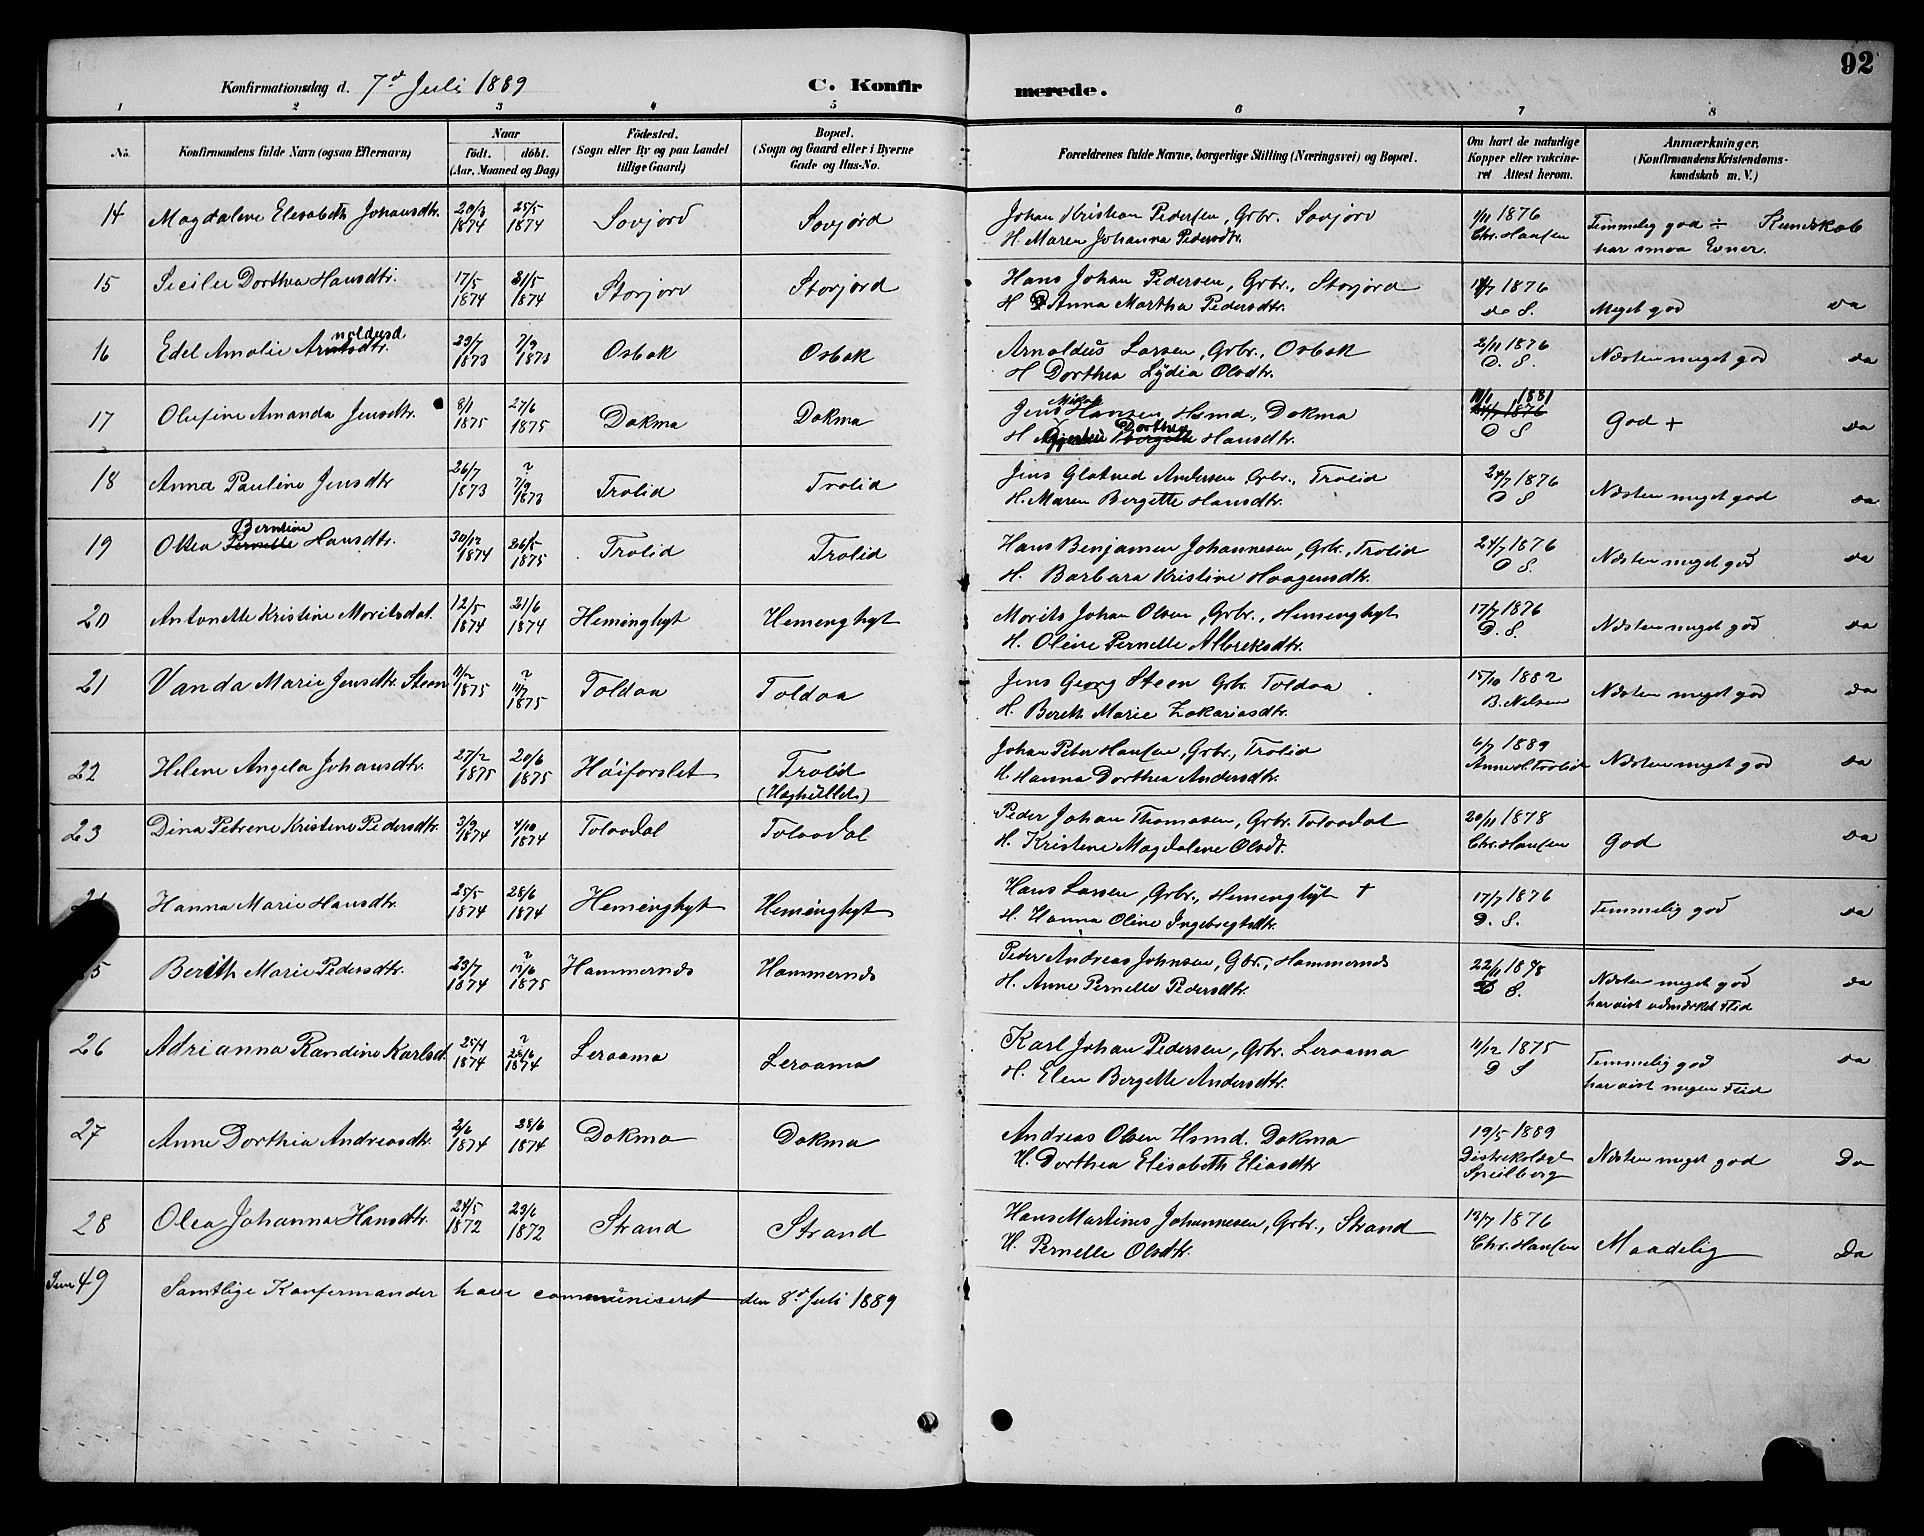 92
Konfirmationsdag d. 7d Juli 1889 C. Konfirmerede.
1 2 3 4 5 6 7 8
No. Konfirmandens fulde Navn (ogsaa Efternavn) Naar födt. döbt. (Aar, Maaned og Dag) Födested. (Sogn eller By og paa Landet tillige Gaard) Bopæl. (Sogn og Gaard eller i Byerne Gade og Hus-No. Forældrenes fulde Navne, borgerlige Stilling (Næringsvei) og Bopæl. Om havt de naturlige Kopper eller vakcineret Attest herom. Anmærkninger. (Konfirmandens Kristendomskundskab m. V.)
14 Magdalene Elisabeth Johansdtr. 20/3 1874 25/5 1874 Sovjord Sovjord Johan Kristian Pedersen, Grbr. Sovjord 1/11 1876 Temmelig god ÷ Kundskab
H. Maren Johanna Pedersdtr. Chr. Hansen har smaa Evner.
15 Sicilie Dorthea Hansdtr. 17/5 1874 31/5 1874 Storjord Storjord Hans Johan Pedersen, Grbr., Storjord 1876 Meget god da
H Anna Martha Pedersdtr. do S.
16 Edel Amalie Arnoldusd 29/7 1873 7/9 1873 Osbak Osbak Arnoldus Larsen, Grbr., Osbak 2/11 1876 Næsten meget god da
H Dorthea Lydia Olsdtr. D. S.
17 Olufine Amanda Jensdtr. 8/1 1875 27/6 1875 Dokma Dokma Jens Mikal Hansen, Hsmd., Dokma 11/1 1881 God + da
H Dorthea Hansdtr. D S
18 Anna Pauline Jensdtr 26/7 1873 ~ 7/9 1873 Trolid Trolid Jens Glatved Andersen Grbr., Trolid 24/7 1876 Næsten meget god da
H. Maren Bergette Hansdtr. D S
19 Oltea Berntine Pernelle Hansdtr. 30/12 1874 26/5 1875 Trolid Trolid Hans Benjamen Johannesen, Grbr., Trolid 24/7 1876 Næsten meget god da
H. Barbara Kristine Haagensdtr. D S.
20 Antonette Kristine Moritsdat. 12/5 1874 21/6 1874 Heminghyt Hemenghyt Morits Johan Olsen, Grbr., Hemenghyt 17/7 1876 Næsten meget god da
H. Oline Pernelle Albreksdtr. D. S.
21 Vanda Marie Jensdtr. Steen 11/2 1875 ~ 11/7 1875 Toldaa Toldaa Jens Georg Steen Grbr. Toldaa 15/10 1882 Næsten meget god da
H. Bereth Marie Zakariasdtr. B. Nelsen
22 Helene Angela Johansdtr. 27/2 1875 20/6 1875 Höiforslet Trolid Johan Peter Hansen, Grbr., Trolid 6/7 1889 Næsten meget god da
H. Hanna Dorthea Andersdtr. Anne H. Trolid
23 Dina Petrene Kristene Pedersdtr. 3/9 1874 4/10 1874 Tolaadal Tolaadal Peder Johan Thomasen, Grbr. Tolaadal 20/11 1878 God da
H. Kristene Magdalene Olsdt. Chr. Hansen
Hanna Marie Hansdtr. 25/5 1874 28/6 1874 Heminghyt Heminghyt Hans Larsen, Grbr., Hemenghyt † 17/7 1876 Temmelig god da
H. Hanna Oline Ingebregtsdtr. D. S.
5 Bereth Marie Pedersdtr. 23/7 1874 ~ 13/6 1875 Hammernæs Hammernæs Peder Andreas Johnsen, Gbr., Hammernæs 22/11 1878 Næsten meget god da
H. Anne Pernelle Pedersdtr. S. har vist udmærket Flid
26 Adrianna Randine Karlsd. 25/4 1874 ~ 28/6 1874 Leraama Leraama Karl Johan Pedersen, Grbr. Leraama 11/12 1875 Temmelig god da
H. Elen Bergette Andersdtr. D S har vist megen Flid
27 Anne Dorthia Andreasdtr. 2/6 1874 28/6 1874 Dokma Dokma Andreas Olsen Hsmd. Dokma 19/5 1889 Næsten meget god Da
H. Dorthea Elisabeth Eliasdtr Spielberg
28 Olea Johanna Hansdtr. 24/5 1872 29/6 1872 Strand Strand Hans Martines Johannesen, Grbr., Strand 19/7 1876 Maadelig Da
H. Pernelle Olsdtr. Chr. Hansen
Sum 49 Samtlige Konfermander have communiseret den 8d Juli 1889